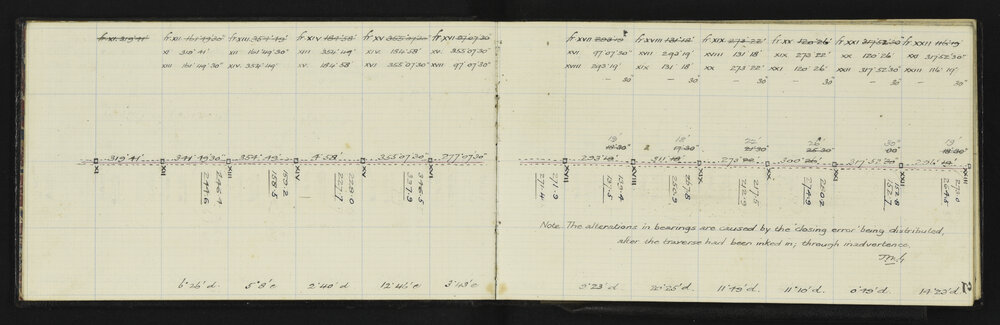 fr XI 319°41' fr XII 161°49'30" fr XIII 354°49' fr XIV 184°58' fr XV 355°07'30" fr XVI 97°07'30"
XI 319°41' XII 161°49'30" XIII 354°49' XIV 184°58' XV 355°07'30"
XIII 161°49'30" XIV 354°49' XV 184°58' XVI 355°07'30" XVII 97°07'30"
319°41' 341°49'30" 354°49' 4°58' 355°07'30" 277°07'30"
XI XII XIII XIV XV XVI
246.4 159.2 228.0 346.5
244.6 158.5 227.7 337.9
6°26'd 5°8'e 2°40'd 12°46'e 3°43'e
fr XVII 293°19' fr XVIII 131°18' fr XIX 273°22' fr XX 120°26' fr XXI 317°52'30" fr XXII 116°19'
XVI 97°07'30" XVII 293°19' XVIII 131°18' XIX 273°22' XX 120°26' XXI 317°52'30"
XVIII 293°19' XIX 131°18' XX 273°22' XXI 120°26' XXII 317°52'30" XXIII 116°19'
– 30" – 30" – 30" – 30" – 30" – 30"
19' 18' 22' 26 30" 19'
18'30" 17'30" 21'30 25'30 00" 18'30"
293°19' 311°18' 273°22' 300°26' 317°52'30" 296°19'
XVII XVIII XIX XX XXIII
271.9 267.8 217.5 260.2 273.0
271.4 250.9 212.9 152.7 264.5
Note. The alterations in bearings are caused by the closing error being distributed,
after the traverse had been inked in; through inadvertence.
9°23'd. 20°25'd. 11°19'd. 11°10'd. 0°19'd. 14°23'd.
2